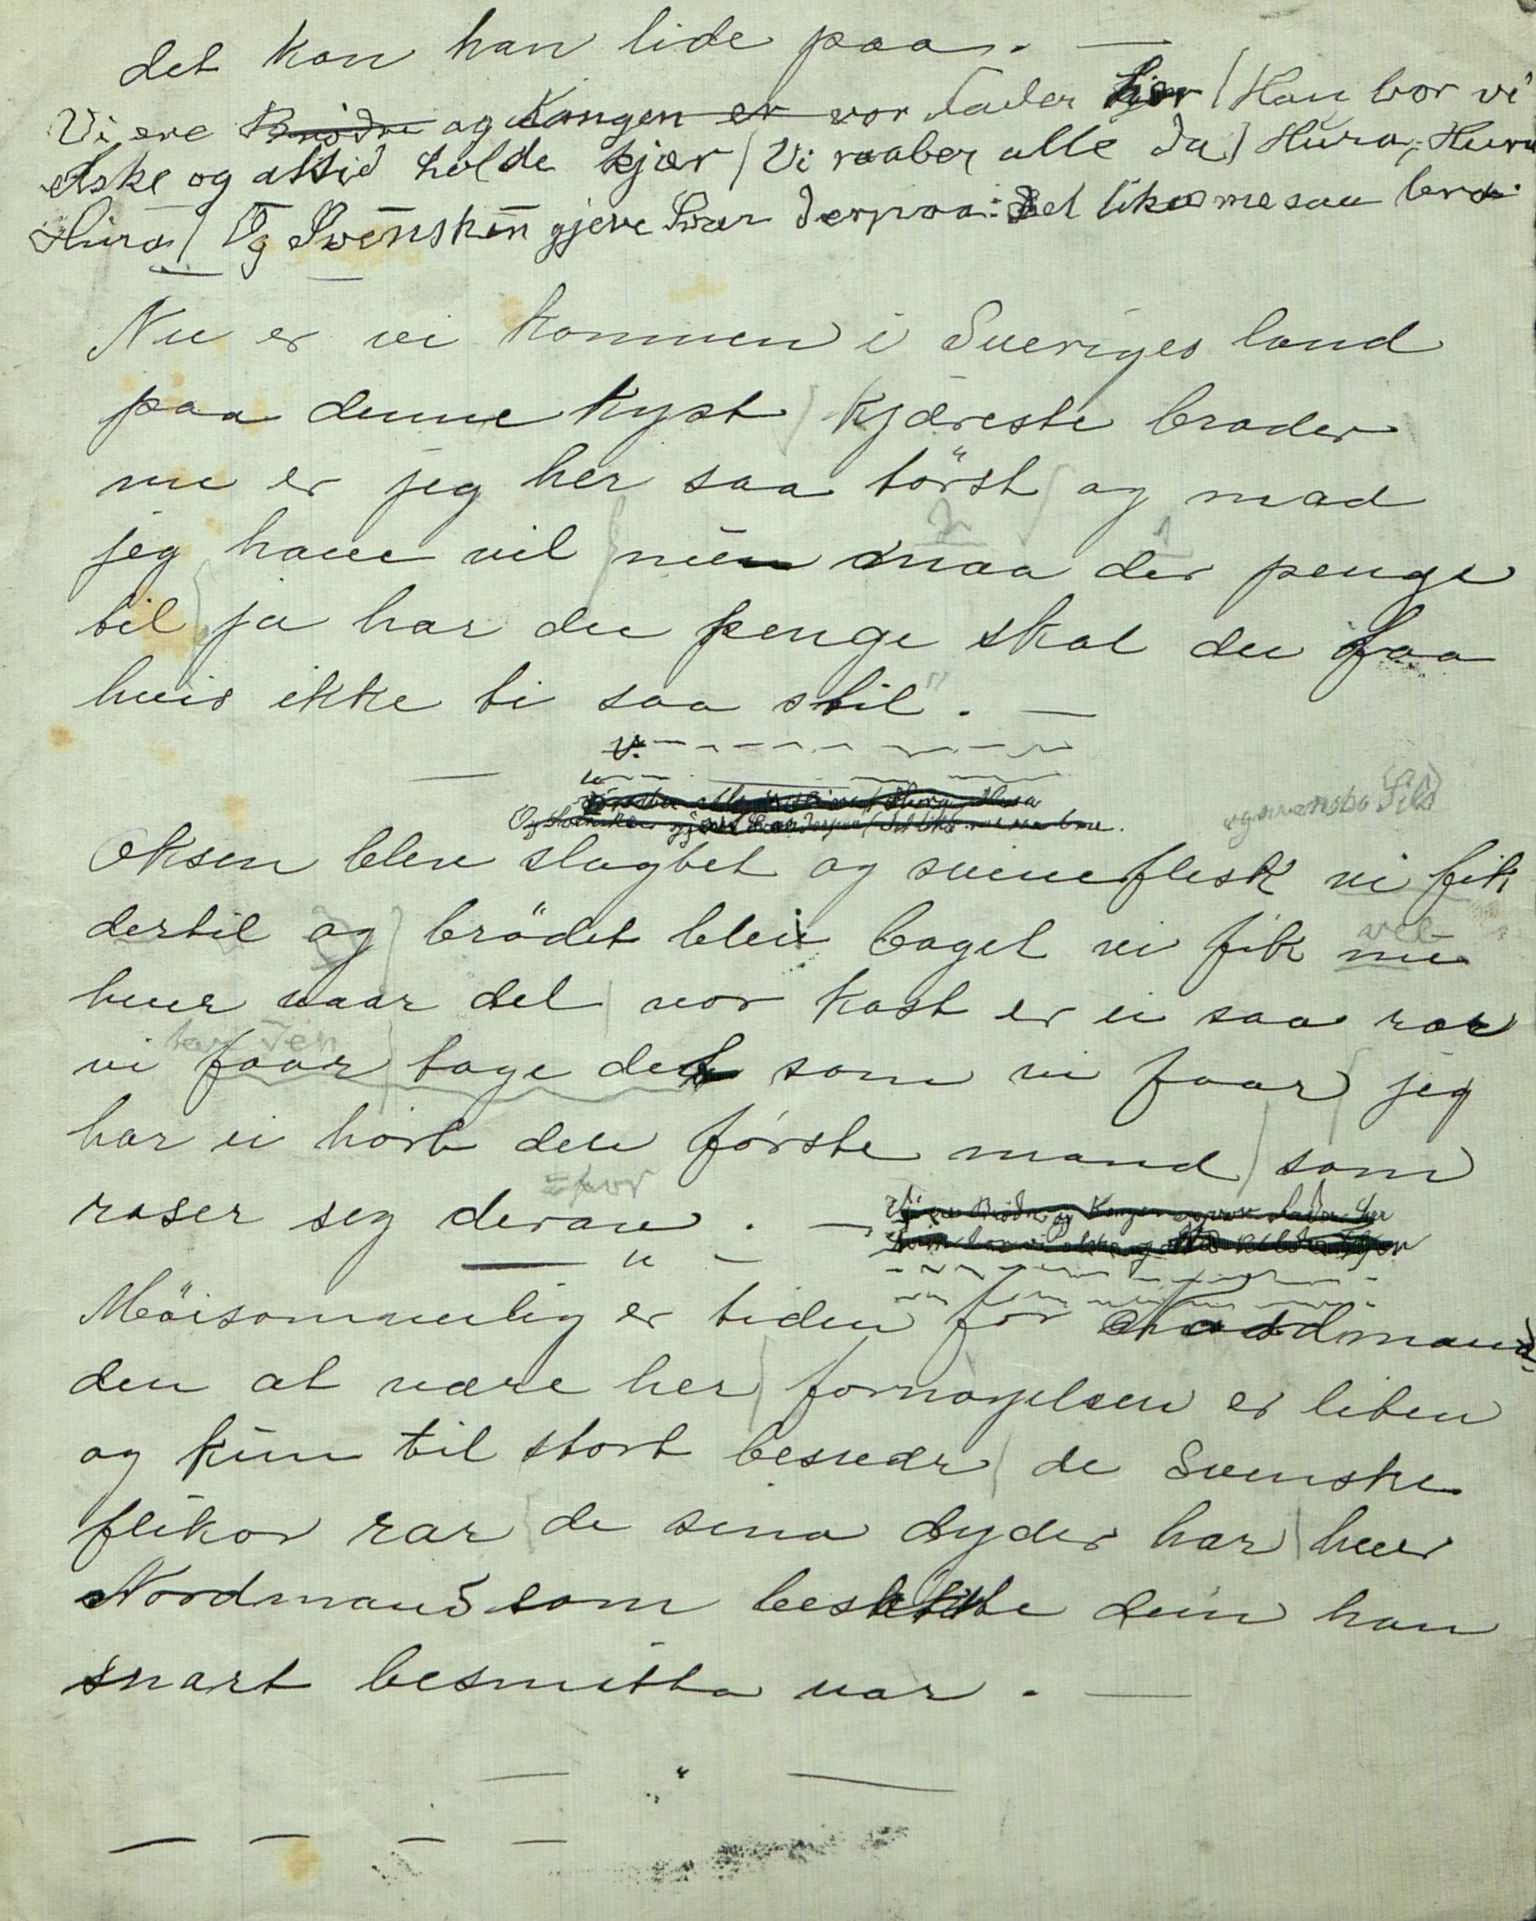 det kan han lide paa. —
Vi ere Brødre og Kongen er vor Fader kjær / Han bor vi
elske og altid holde kjær / Vi raaber alle da / Hura, Hura
Hura / Og Svensken gjeve Svar derpaa: Det likar me saa bra
Nu er vi kommen i Sveriges land
paa denne kyst / kjæreste broder
nu er jeg her saa törst / og mad
jeg have vil / men maa der penge
til / ja har du penge skal du faa
hvis ikke ti saa stil". —
Og Svensken gjeve Svar derpaa / Det likar me saa bra.
og svenska Sild
Oksen blev slagtet og svineflesk vi fik
dertil og / brödet blev baget vi fik nu
vel
hver vaar del / vor kost er ei saa rar
tar den
vi faar / tage det som vi faar / jeg
har ei hört den förste mand / som
roser seg derav. —
Möisommelig er tiden for Nordmand
den at være her / fornøyelsen er liten
og kun til stort besvær / de Svenske
flikor rar / de sina dyder har / hver
Nordmand som besökte dem han
snart besmitta var. —